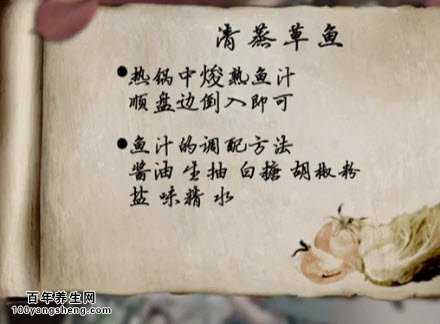 清蒸草鱼
●热锅中焌熟鱼汁
顺盘边倒入即可
●鱼汁的调配方法
酱油 生抽 白糖 胡椒粉
盐 味精 水
百年养生网
100yangsheng.com